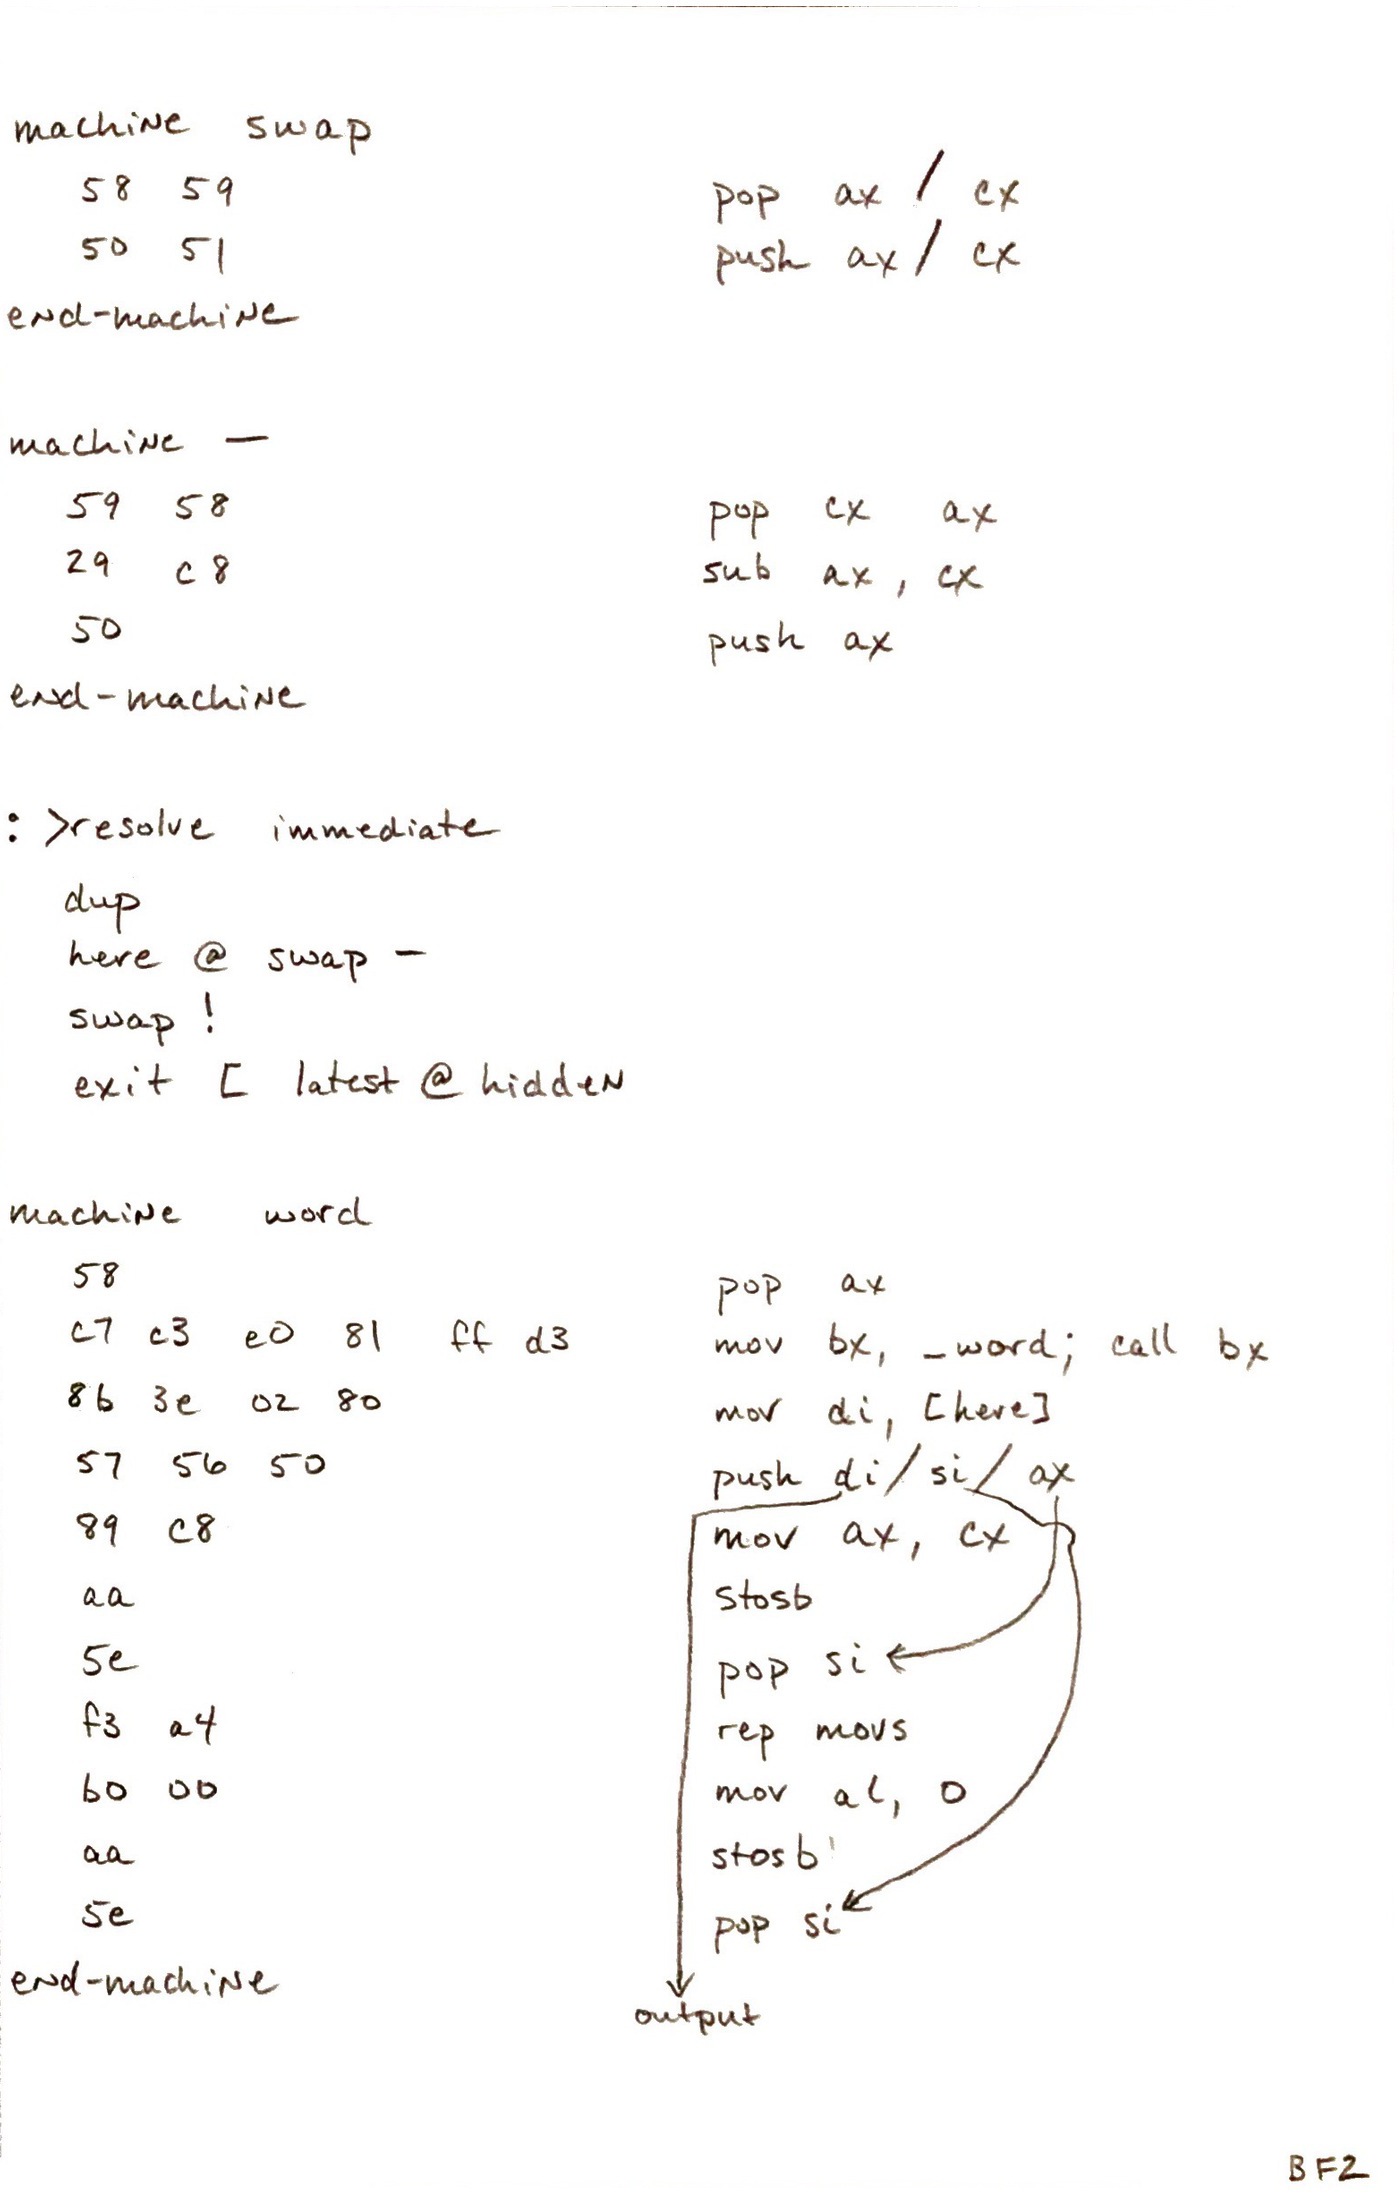 machine swap
58 59 pop ax / cx
50 51 push ax / cx
end-machine
machine —
59 58 pop cx ax
29 c8 sub ax, cx
50 push ax
end-machine
: >resolve immediate
dup
here @ swap -
swap !
exit [ latest @ hidden
machine word
58 pop ax
c7 c3 e0 81 ff d3 mov bx, _word; call bx
8b 3e 02 80 mov di, [here]
57 56 50 push di / si / ax
89 c8 mov ax, cx
aa stosb
5e pop si
f3 a4 rep movs
b0 00 mov al, 0
aa stosb
5e pop si
end-machine
output
BF2